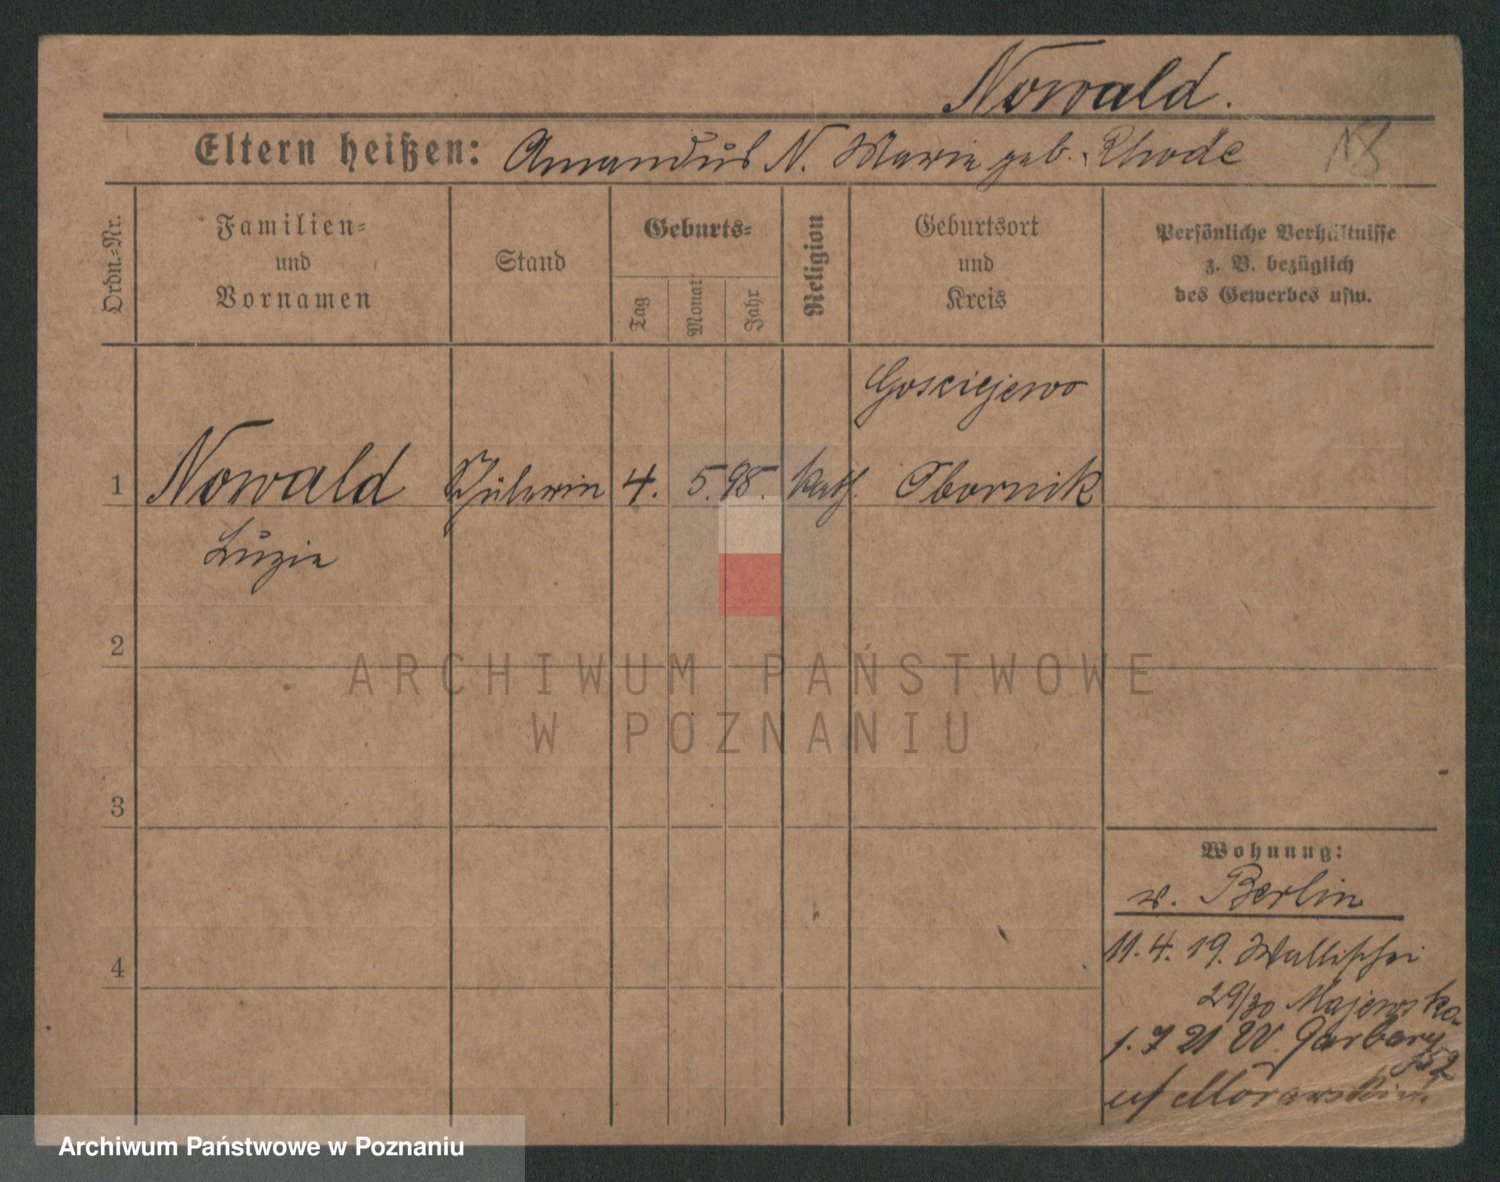 Nowald.
Eltern heißen: Amandus N. Marie geb. Rhode
18
Ordn.-Nr.
Familien-
und
Vornamen
Stand
Geburts-
Tag
Monat
Jahr
Religion
Geburtsort
und
Kreis
Persönliche Verhältnisse
z. B. bezüglich
des Gewerbes usw.
Gosciejewo
1 Nowald Schülerin 4. 5. 98. kath. Obornik
Luzie
2
3
4
Wohnung:
v. Berlin
11. 4. 19. Wallischei
29/30 Majewska
1. 7 21 W. Garbary
52
Morawskim
ARCHIWUM PAŃSTWOWE
W POZNANIU
Archiwum Państwowe w Poznaniu